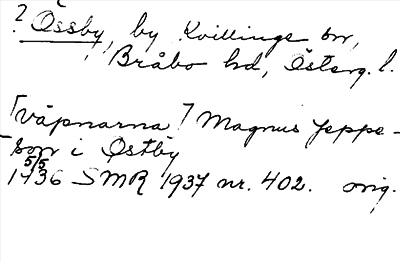 ? Össby, by Kvillinge sn,
Bråbo hd, Österg. l.
[väpnarna] Magnus Jeppe-
son i Østby
1436 5/5 SMR 1937 nr. 402. orig.